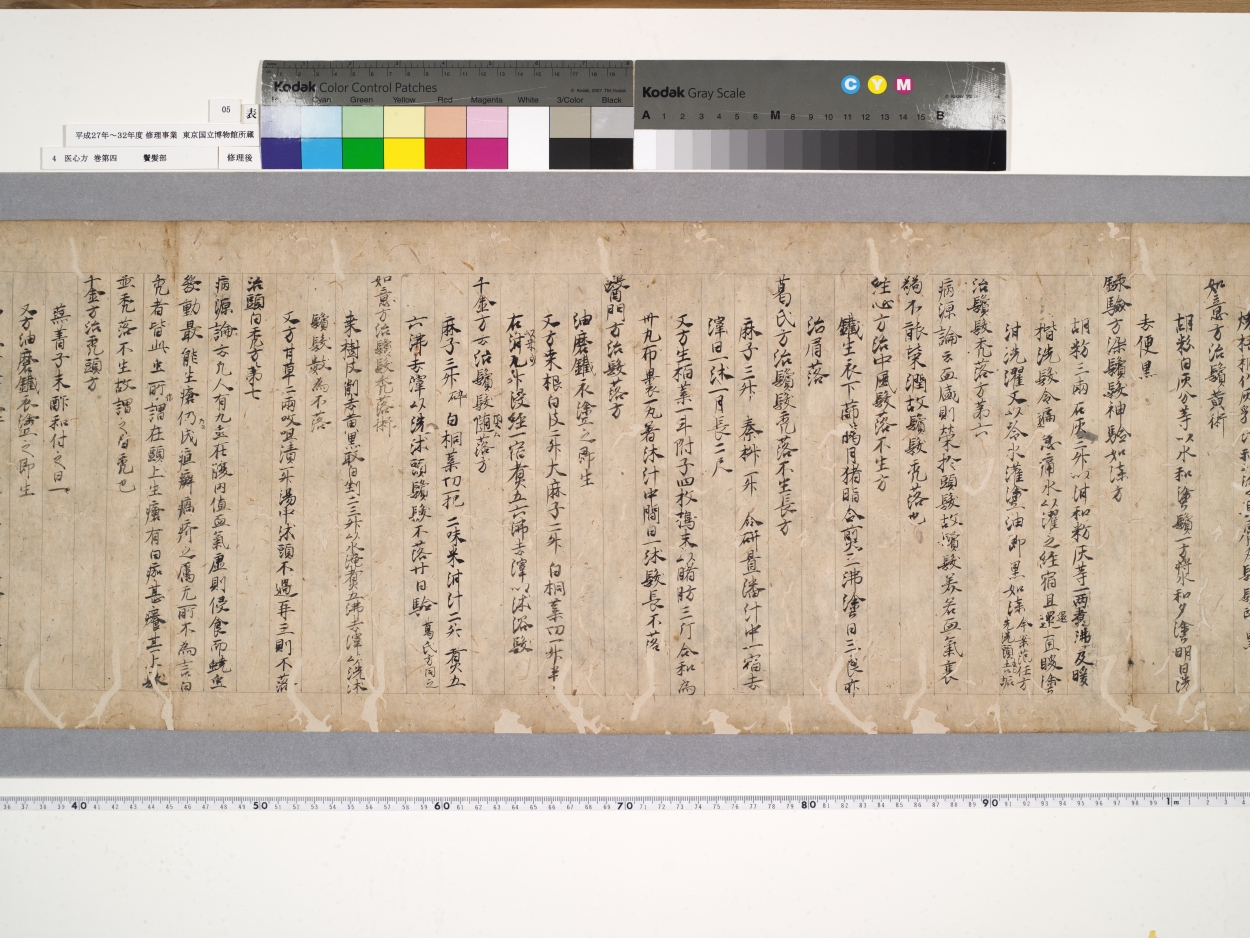 Kodak Color Control Patches
Cyan Green Yellow Red Magenta White 3/Color Black
Kodak Gray Scale
C Y M
A 1 2 3 4 5 6 M 8 9 10 11 12 13 14 15 B
05 表
平成27年～32年度 修理事業 東京国立博物館所蔵
4 医心方 巻第四 鬢髪部 修理後
如意方治鬚黄術
胡粉白灰分等以水和塗鬚一方漿水和夕塗明日洗
去便黒
録験方染鬚髪神驗如漆方
胡粉三兩石灰三升以泔和粉灰等一兩煮沸及暖
揩洗髪令遍急痛水以濯之経宿且還直暖塗
泔洗濯又以冷水灌塗油即黒如漆
治鬢髪禿落方第六
病源論云血盛則榮於頭髪故鬚髪美若血氣衰
弱不能榮潤故鬚髪禿落也
経心方治中風髪落不生方
鐵生衣下篩臈月猪脂合煎三沸塗日三良亦
治眉落
葛氏方治鬢髪禿落不生長方
麻子三升 秦椒一升 合研置潘汁中一宿去
滓日一沐一月長二尺
又方生柏葉一斗附子四枚搗末以睹肪三斤合和為
卅丸布裹一丸着沐汁中間日一沐髪長不落
醫門方治髪落方
油磨鐵衣塗之即生
又方桒根白皮三升大麻子二升白桐葉切一升半
右以米泔九升浸経一宿煮五六沸去滓以沐浴髪
千金方云治鬚髪随落方
麻子三升碎 白桐葉切一把 二味米泔汁二斗煮五
六沸去滓以洗沐頭鬚髪不落廿日驗 葛氏方同之
如意方治鬚髪禿落術
桒樹皮削去苗黒取白剉二三升以水淹煮五沸去滓以洗沐
鬚髪数為不落
又方甘草二兩㕮咀漬一升湯中沐頭不過再三則不落
治頭白禿方第七
病源論云凢人有九虫在腸内値血氣虚則侵食而蟯虫
發動最能生瘡仍成疽癬瘑疥之屬无所不為言白
禿者皆此虫所謂在頭上生瘡有白痂甚癢其上髪
並禿落不生故謂之白禿也
千金方治禿頭方
蕪菁子末酢和付之日一
又方油磨鐵衣塗之即生
40 50 60 70 80 90 1m